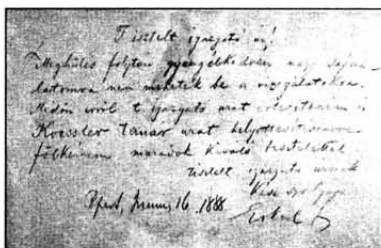 Tisztelt igazgató úr!
Meghűlés folytán gyengélkedvén nagy sajná-
latomra nem mehetek be a vizsgálatokra.
Midőn erről t. igazgató urat értesíteném s
Koessler tanár urat helyettesítésemre
fölkérném maradok kiváló tisztelettel
tisztelt igazgató úrnak
kész szolgája
Bpest, 16. 1888.
Erkel